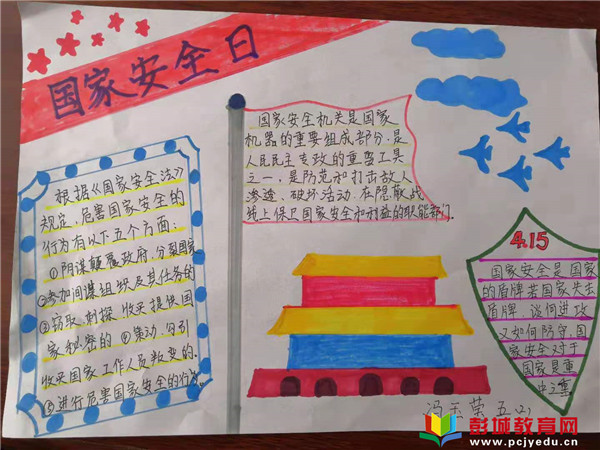 国家安全日
国家安全机关是国家
机器的重要组成部分.是
人民民主专政的重要工具
之一.是防范和打击敌人
渗透.破坏活动.在隐蔽战
线上保卫国家安全和利益的职能部门.
根据《国家安全法》
规定.危害国家安全的
行为有以下五个方面.
①阴谋颠覆政府.分裂国家.
②参加间谍组织及其任务的
③窃取.刺探.收买提供国
家秘密的④策动.勾引.
收买国家工作人员叛变的.
⑤进行危害国家安全的
4.15
国家安全是国家
的盾牌若国家失去
盾牌.谈何进攻
又如何防守.国
家安全对于
国家是重
中之重
五
彭城教育网
www.pcjyedu.cn